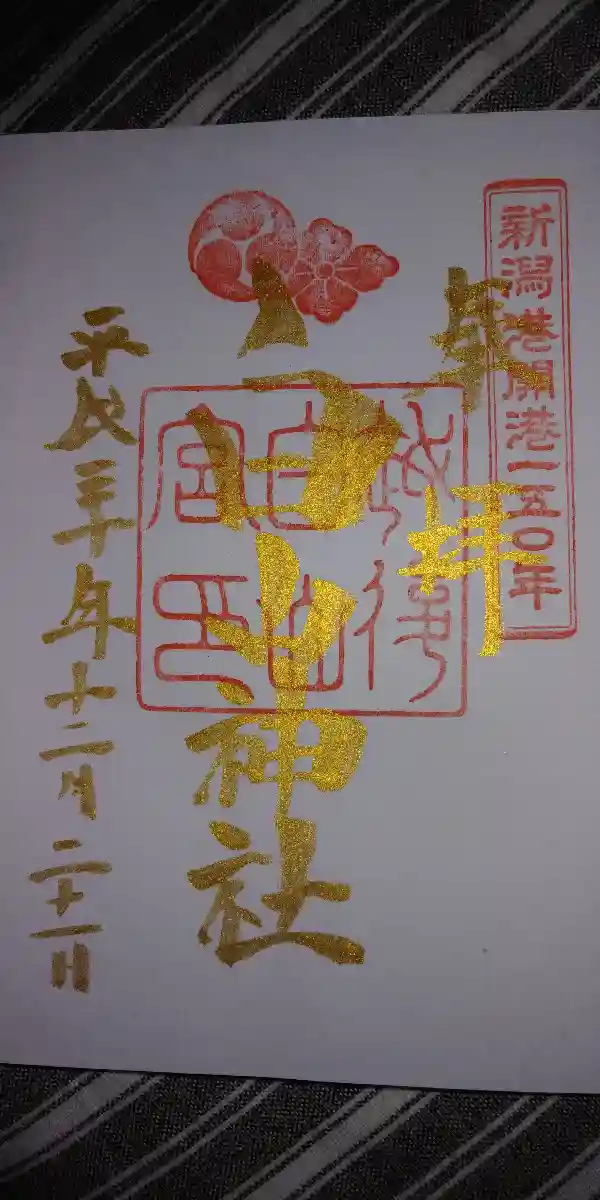 新潟港開港一五〇年
奉拝
白山神社
越後
白山
宮印
平成三十年十二月二十一日